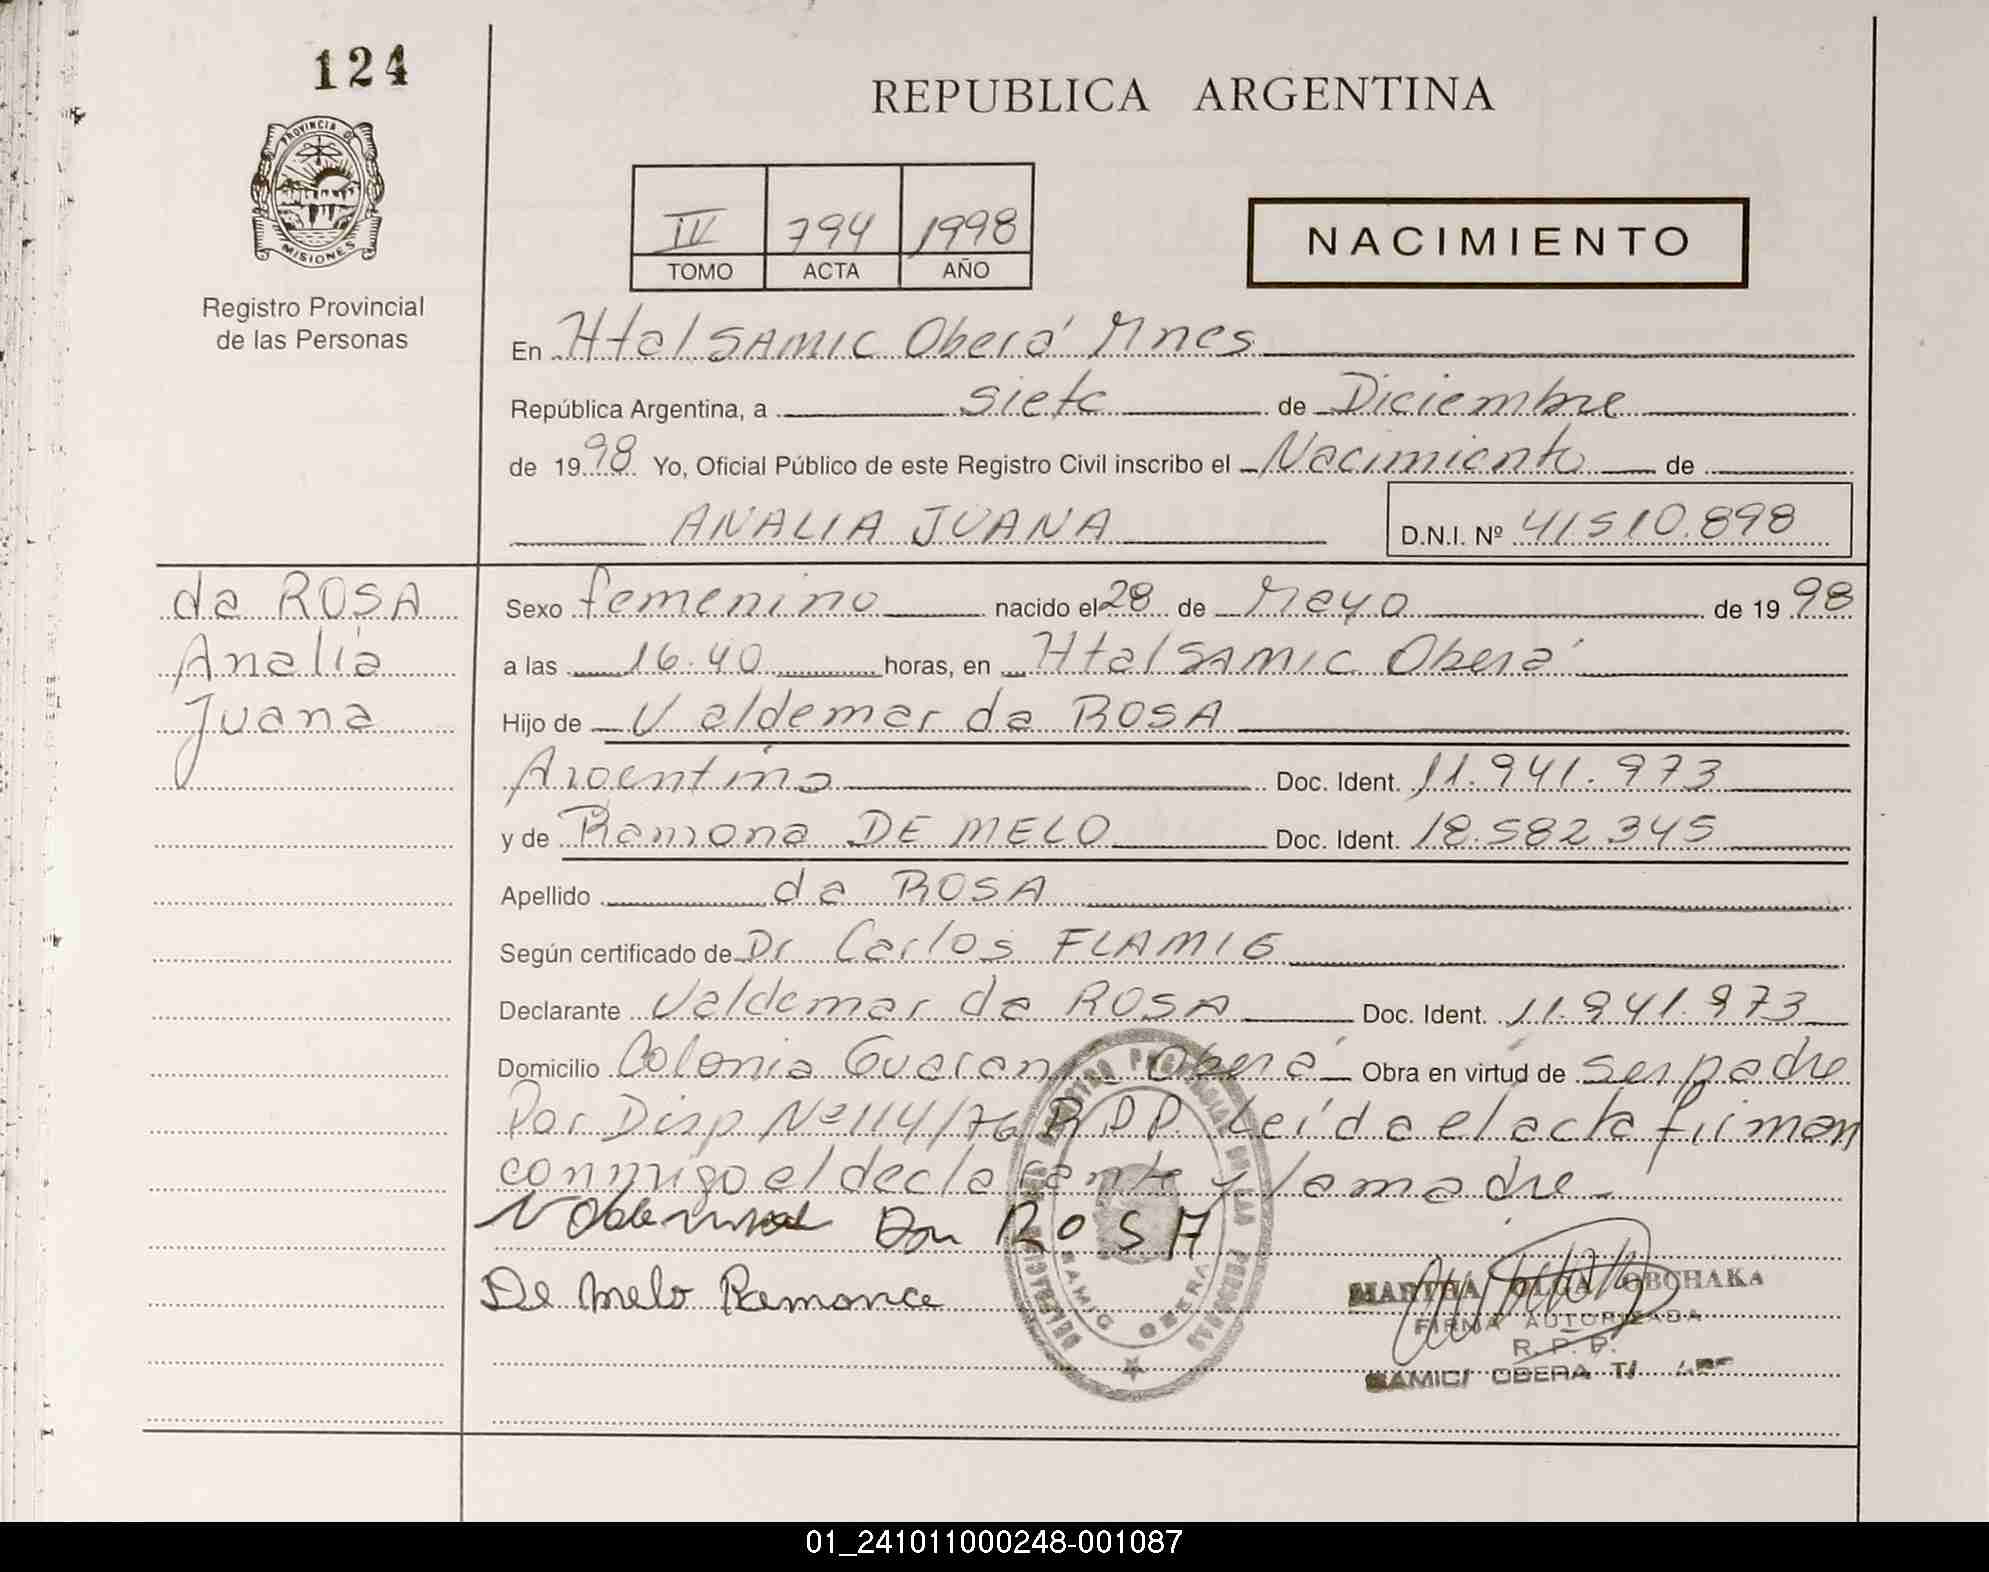 124
REPUBLICA ARGENTINA
PROVINCIA DE
MISIONES
Registro Provincial
de las Personas
IV 794 1998
TOMO ACTA AÑO
NACIMIENTO
En Htal SAMIC Oberá Mnes
República Argentina, a siete de Diciembre
de 1998 Yo, Oficial Público de este Registro Civil inscribo el Nacimiento de
ANALIA JUANA D.N.I. Nº 41510.898
da ROSA
Analia
Juana
Sexo femenino nacido el 28 de Mayo de 1998
a las 16.40 horas, en Htal SAMIC Oberá
Hijo de Valdemar da ROSA
Argentina Doc. Ident. 11.941.973
y de Ramona DE MELO Doc. Ident. 18.582 345
Apellido da ROSA
Según certificado de Dr Carlos FLAMIG
Declarante Valdemar da ROSA Doc. Ident. 11.941.973
Domicilio Colonia Guaraní Oberá Obra en virtud de ser padre
Por Disp Nº 114/76 R.P.P. Leída el acta firman
conmigo el declarante y la madre
ROSA
De Melo Ramona
MARTHA OLGA OBCHAKA
FIRMA AUTORIZADA
R. P. P.
SAMIC OBERA
SAMIC OBERA
01_241011000248-001087